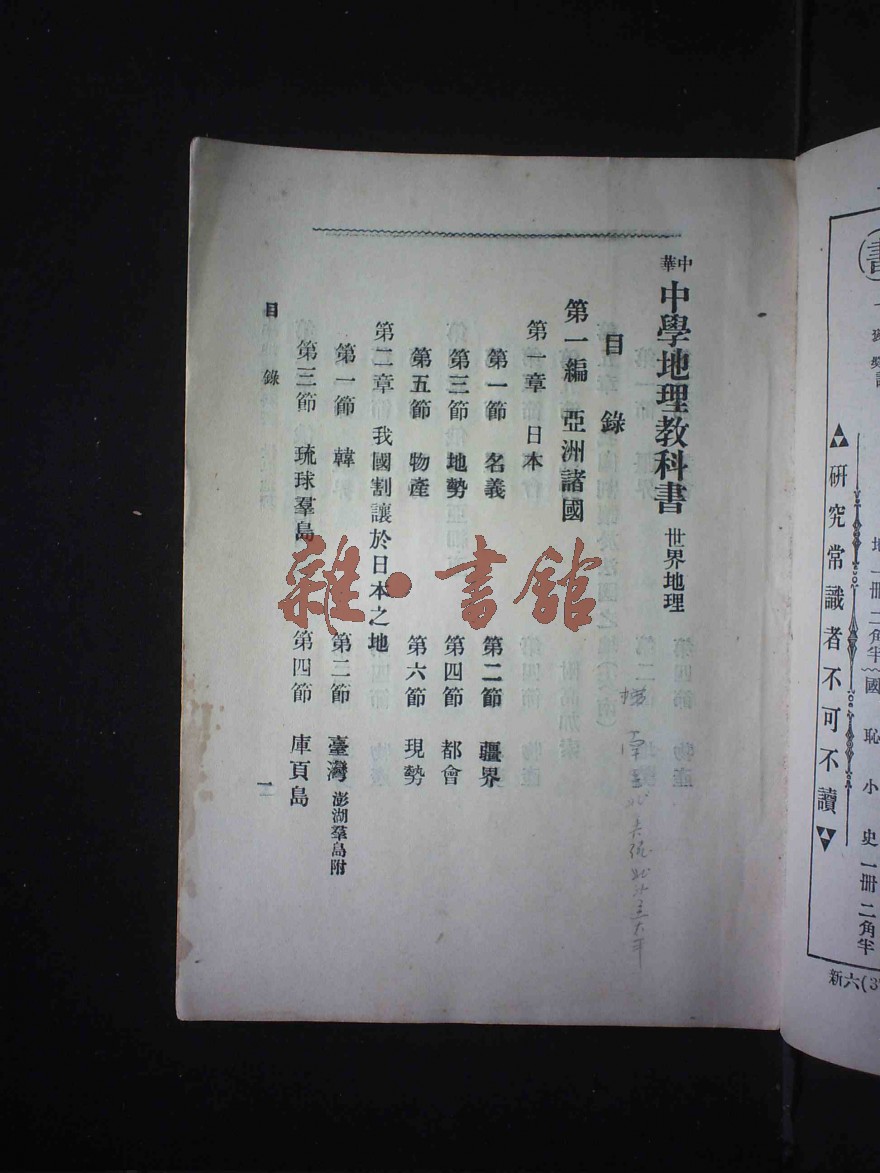 中華
中學地理教科書 世界地理
目錄
第一編 亞洲諸國
第一章 日本
第一節 名義 第二節 疆界
第三節 地勢 第四節 都會
第五節 物產 第六節 現勢
第二章 我國割讓於日本之地
第一節 韓 第二節 臺灣 澎湖羣島附
第三節 琉球羣島 第四節 庫頁島
目錄 一
雜·書館
書
研究常識者不可不讀
國恥小史 一冊 二角半
新六(3